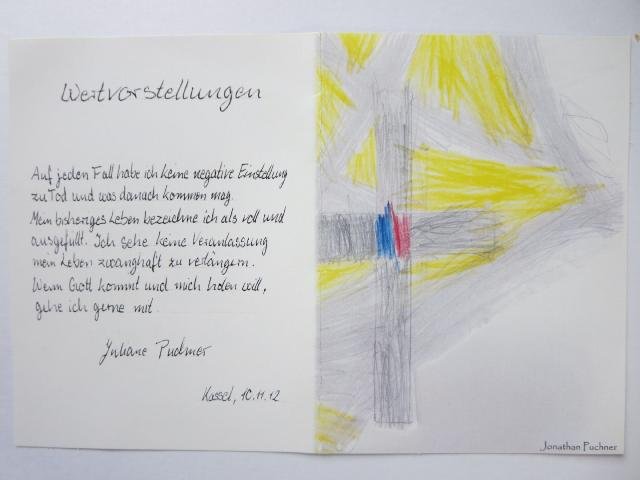 Wertvorstellungen
Auf jeden Fall habe ich keine negative Einstellung
zu Tod und was danach kommen mag.
Mein bisheriges Leben bezeichne ich als voll und
ausgefüllt. Ich sehe keine Veranlassung
mein Leben zwanghaft zu verlängern.
Wenn Gott kommt und mich holen will,
gehe ich gerne mit.
Juliane Puchner
Kassel, 10.11.12
Jonathan Puchner